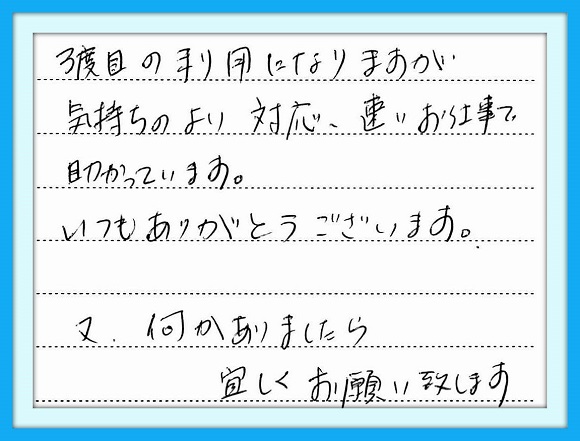 3度目の利用になりますが
気持ちのより対応、速いお仕事で
助かっています。
いつもありがとうございます。
又、何かありましたら
宜しくお願い致します